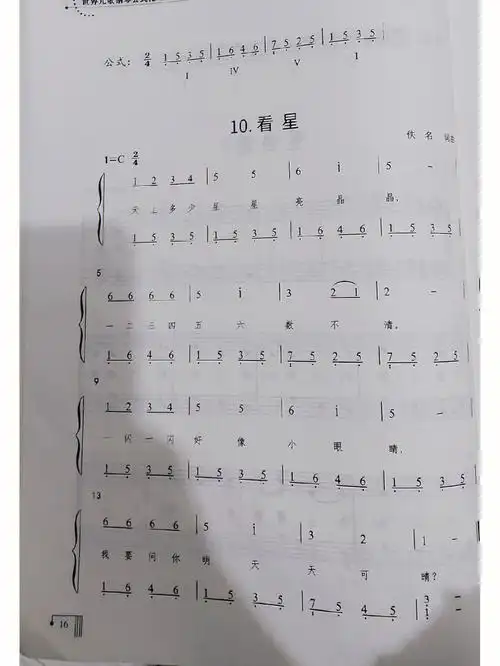 公式： 2/4 1 5 3 5 | 1 6 4 6 | 7 5 2 5 | 1 5 3 5 |
I IV V I
10. 看星
佚名 词曲
1=C 2/4
1 2 3 4 | 5 5 | 6 i | 5 - |
天上多少星星亮晶晶，
1 5 3 5 | 1 5 3 5 | 1 6 4 6 | 1 5 3 5 |
5
6 6 6 6 | 5 i | 3 2 1 | 2 - |
一二三四五六数不清。
1 6 4 6 | 1 5 3 5 | 7 5 2 5 | 7 5 2 5 |
9
1 2 3 4 | 5 5 | 6 i | 5 - |
一闪一闪好像小眼睛，
1 5 3 5 | 1 5 3 5 | 1 6 4 6 | 1 5 3 5 |
13
6 6 6 6 | 5 i | 3 2 | 1 -
我要问你明天天可晴？
1 6 4 6 | 1 5 3 5 | 7 5 2 5 | 3 1 -
16